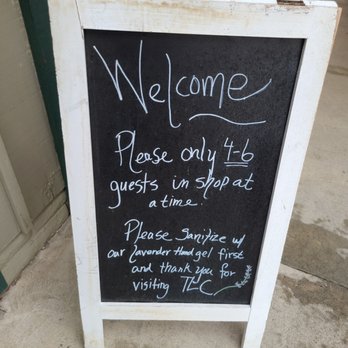 Welcome
Please only 4-6
guests in shop at
a time!
Please Sanitize w/
our lavender Hand gel first
and thank you for
visiting TLC